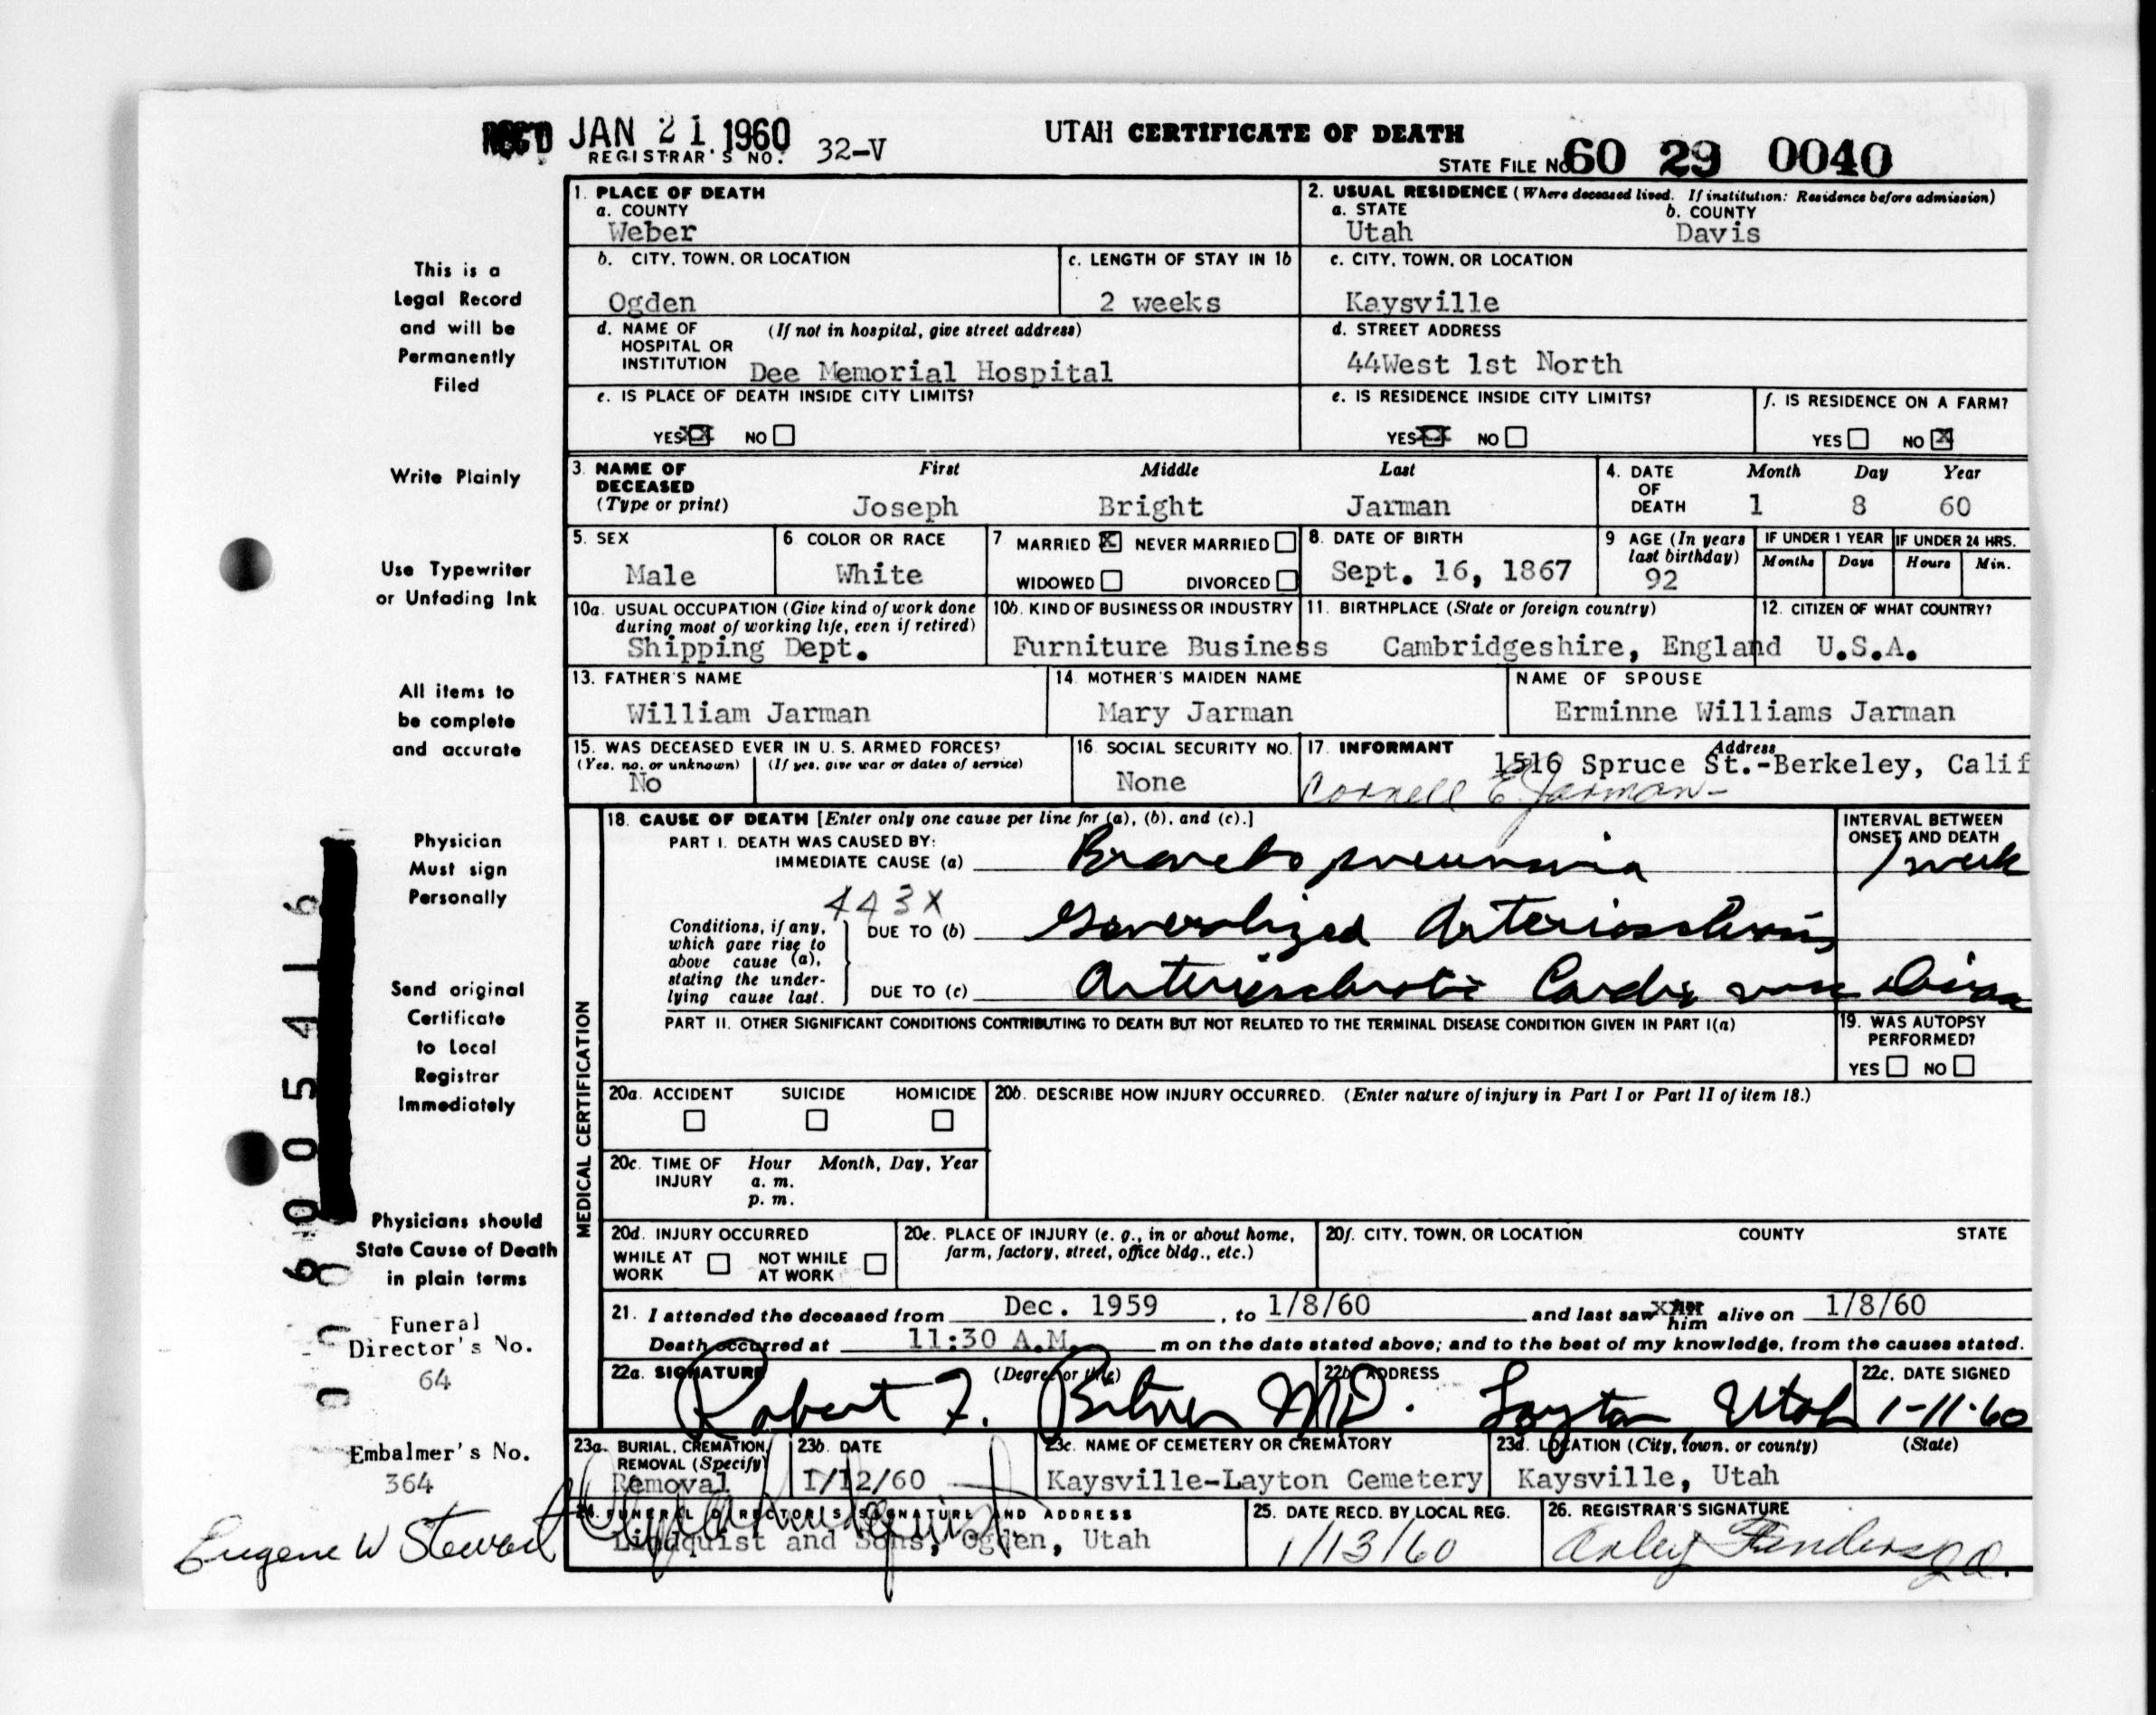 REC'D JAN 21 1960
REGISTRAR'S NO. 32-V
UTAH CERTIFICATE OF DEATH
STATE FILE No. 60 29 0040
1. PLACE OF DEATH
a. COUNTY
Weber
2. USUAL RESIDENCE (Where deceased lived. If institution: Residence before admission)
a. STATE b. COUNTY
Utah Davis
b. CITY, TOWN, OR LOCATION
Ogden
c. LENGTH OF STAY IN 1b
2 weeks
c. CITY, TOWN, OR LOCATION
Kaysville
d. NAME OF (If not in hospital, give street address)
HOSPITAL OR
INSTITUTION Dee Memorial Hospital
d. STREET ADDRESS
44West 1st North
e. IS PLACE OF DEATH INSIDE CITY LIMITS?
YES NO
e. IS RESIDENCE INSIDE CITY LIMITS?
YES NO
f. IS RESIDENCE ON A FARM?
YES NO X
3. NAME OF DECEASED (Type or print)
First Middle Last
Joseph Bright Jarman
4. DATE OF DEATH
Month Day Year
1 8 60
5. SEX
Male
6 COLOR OR RACE
White
7 MARRIED X NEVER MARRIED
WIDOWED DIVORCED
8. DATE OF BIRTH
Sept. 16, 1867
9 AGE (In years last birthday)
92
IF UNDER 1 YEAR IF UNDER 24 HRS.
Months Days Hours Min.
10a. USUAL OCCUPATION (Give kind of work done
during most of working life, even if retired)
Shipping Dept.
10b. KIND OF BUSINESS OR INDUSTRY
Furniture Business
11. BIRTHPLACE (State or foreign country)
Cambridgeshire, England
12. CITIZEN OF WHAT COUNTRY?
U.S.A.
13. FATHER'S NAME
William Jarman
14. MOTHER'S MAIDEN NAME
Mary Jarman
NAME OF SPOUSE
Erminne Williams Jarman
15. WAS DECEASED EVER IN U. S. ARMED FORCES?
(Yes, no, or unknown) (If yes, give war or dates of service)
No
16. SOCIAL SECURITY NO.
None
17. INFORMANT Address
1516 Spruce St.-Berkeley, Calif
Cornell E. Jarman
MEDICAL CERTIFICATION
18. CAUSE OF DEATH [Enter only one cause per line for (a), (b), and (c).]
PART I. DEATH WAS CAUSED BY:
IMMEDIATE CAUSE (a) Broncho pneumonia
INTERVAL BETWEEN
ONSET AND DEATH
1 week
443X
Conditions, if any,
which gave rise to
above cause (a),
stating the under-
lying cause last.
DUE TO (b) Generalized Arteriosclerosis
DUE TO (c) Arteriosclerotic Cardio vasc disease
PART II. OTHER SIGNIFICANT CONDITIONS CONTRIBUTING TO DEATH BUT NOT RELATED TO THE TERMINAL DISEASE CONDITION GIVEN IN PART I(a)
19. WAS AUTOPSY
PERFORMED?
YES NO
20a. ACCIDENT SUICIDE HOMICIDE
20b. DESCRIBE HOW INJURY OCCURRED. (Enter nature of injury in Part I or Part II of item 18.)
20c. TIME OF INJURY
Hour Month, Day, Year
a. m.
p. m.
20d. INJURY OCCURRED
WHILE AT WORK NOT WHILE AT WORK
20e. PLACE OF INJURY (e. g., in or about home,
farm, factory, street, office bldg., etc.)
20f. CITY, TOWN, OR LOCATION COUNTY STATE
21. I attended the deceased from Dec. 1959, to 1/8/60 and last saw him alive on 1/8/60
Death occurred at 11:30 A.M. m on the date stated above; and to the best of my knowledge, from the causes stated.
22a. SIGNATURE (Degree or title)
Robert F. Bitner MD.
22b. ADDRESS
Layton Utah
22c. DATE SIGNED
1-11-60
23a. BURIAL, CREMATION,
REMOVAL (Specify)
Removal
23b. DATE
1/12/60
23c. NAME OF CEMETERY OR CREMATORY
Kaysville-Layton Cemetery
23d. LOCATION (City, town, or county) (State)
Kaysville, Utah
24. FUNERAL DIRECTOR'S SIGNATURE AND ADDRESS
Lindquist and Sons, Ogden, Utah
25. DATE RECD. BY LOCAL REG.
1/13/60
26. REGISTRAR'S SIGNATURE
This is a
Legal Record
and will be
Permanently
Filed
Write Plainly
Use Typewriter
or Unfading Ink
All items to
be complete
and accurate
Physician
Must sign
Personally
Send original
Certificate
to Local
Registrar
Immediately
Physicians should
State Cause of Death
in plain terms
Funeral
Director's No.
64
Embalmer's No.
364
Eugene W Stewart
6005416